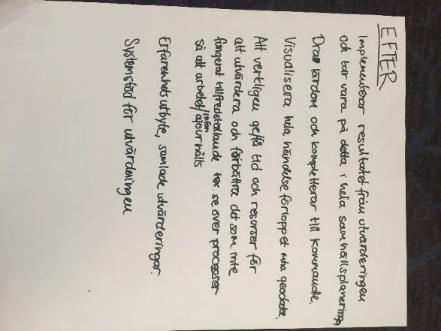 EFTER
Implementerar resultatet från utvärderingen
och tar vara på detta i hela samhällsplanering
Drar lärdom och kompletterar till kommande.
Visualisera hela händelseförloppet mha geodata.
Att verkligen tid och resurser för
att utvärdera och förbättra det som inte
fungerat tillfredställande se över processer
så att arbetet/ ajourhålls
Erfarenhetsutbyte, samlade utvärderingar.
Systemstöd för utvärderingen